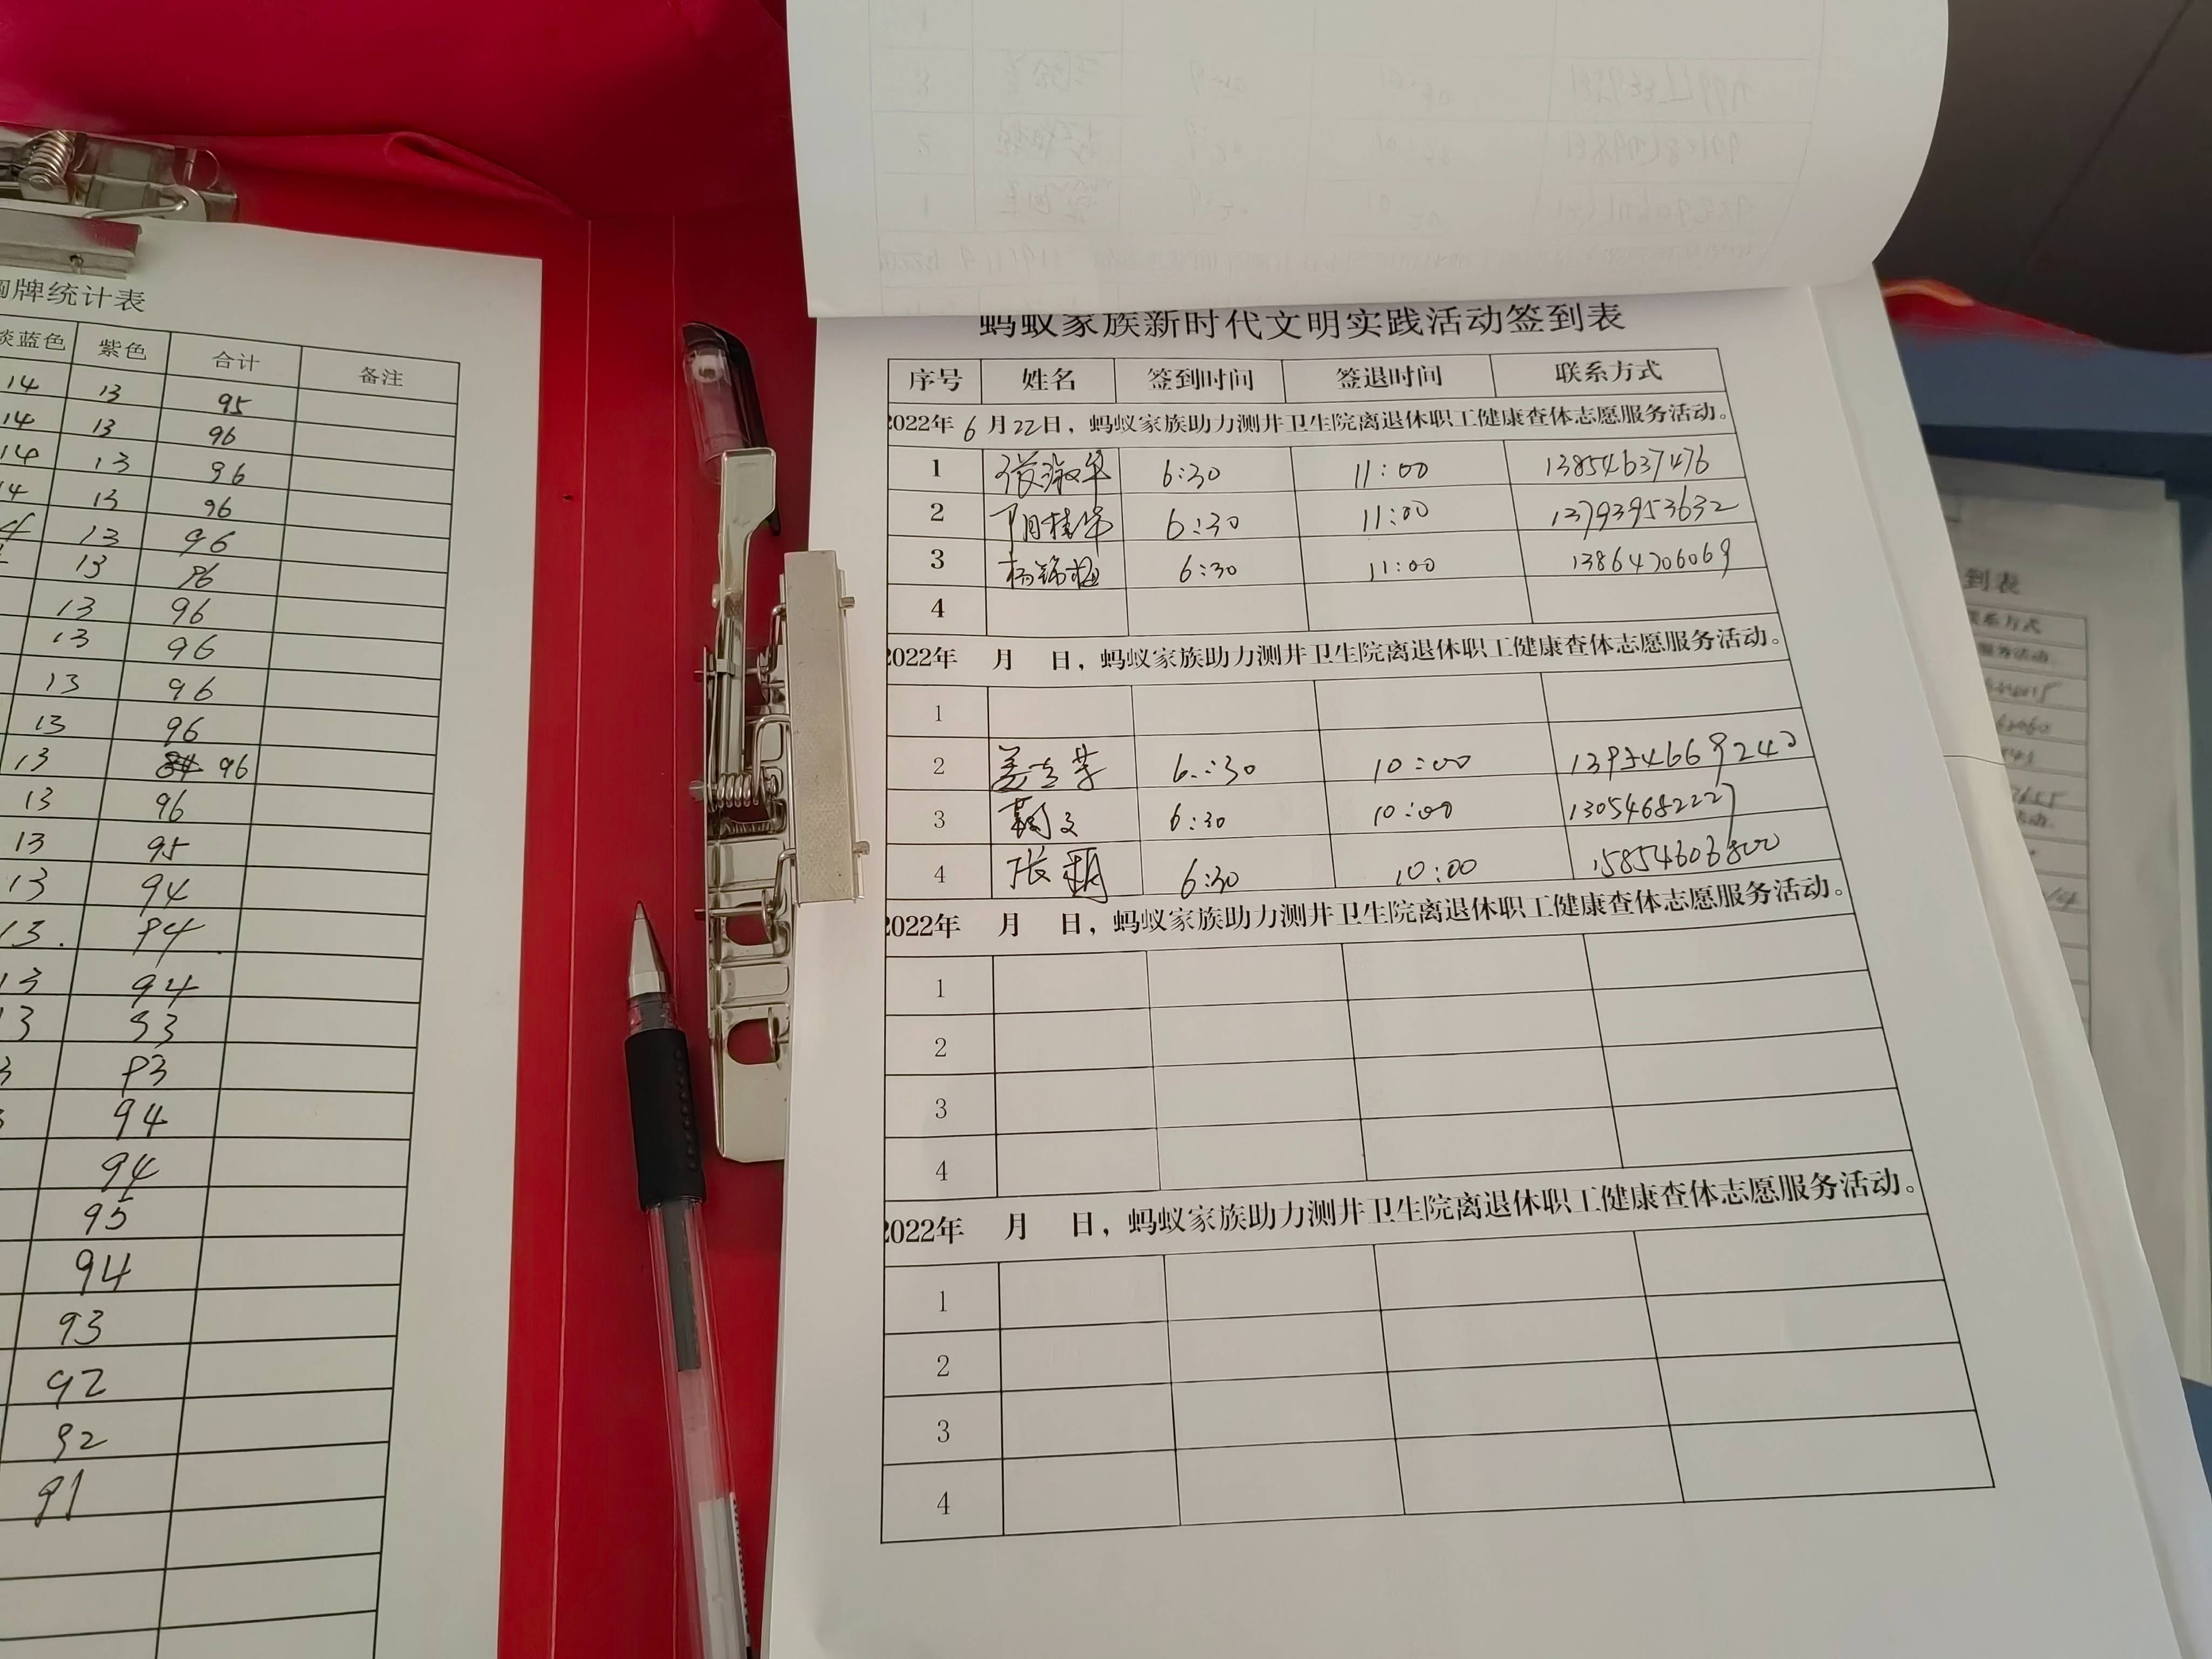 牌统计表
蓝色 紫色 合计 备注
14 13 95
14 13 96
14 13 96
14 13 96
13 96
13 96
13 96
13 96
13 96
13 96
13 96
13 96
13 95
13 94
13. 94
13 94
13 93
93
94
94
95
94
93
92
92
91
蚂蚁家族新时代文明实践活动签到表
序号 姓名 签到时间 签退时间 联系方式
2022年6月22日，蚂蚁家族助力测井卫生院离退休职工健康查体志愿服务活动。
1 张淑华 6:30 11:00 13854637476
2 桂华 6:30 11:00 13793953632
3 杨锦梅 6:30 11:00 13864706069
4
2022年 月 日，蚂蚁家族助力测井卫生院离退休职工健康查体志愿服务活动。
1
2 6:30 10:00
3 6:30 10:00 13054682227
4 张 6:30 10:00 15854606800
2022年 月 日，蚂蚁家族助力测井卫生院离退休职工健康查体志愿服务活动。
1
2
3
4
2022年 月 日，蚂蚁家族助力测井卫生院离退休职工健康查体志愿服务活动。
1
2
3
4
到表
系方式
服务活动